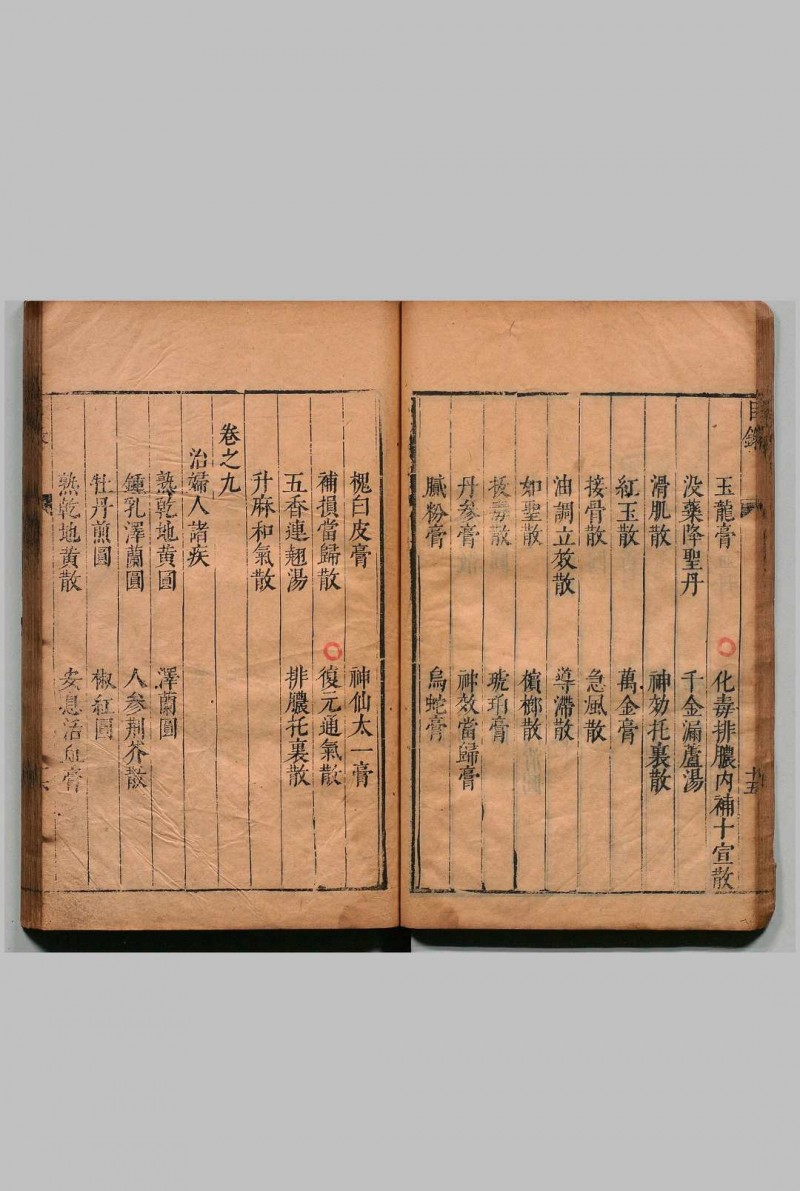 目錄
十五
玉龍膏　化毒排膿內補十宣散
没藥降聖丹　千金漏蘆湯
滑肌散　神効托裏散
紅玉散　萬金膏
接骨散　急風散
油調立效散　導滯散
如聖散　檳榔散
拔毒散　琥珀膏
丹參膏　神效當歸膏
膩粉膏　烏蛇膏
槐白皮膏　神仙太一膏
補損當歸散　復元通氣散
五香連翹湯　排膿托裏散
升麻和氣散
卷之九
治婦人諸疾
熟乾地黃圓　澤蘭圓
鍾乳澤蘭圓　人參荆芥散
牡丹煎圓　椒紅圓
熟乾地黃散　安息活血膏